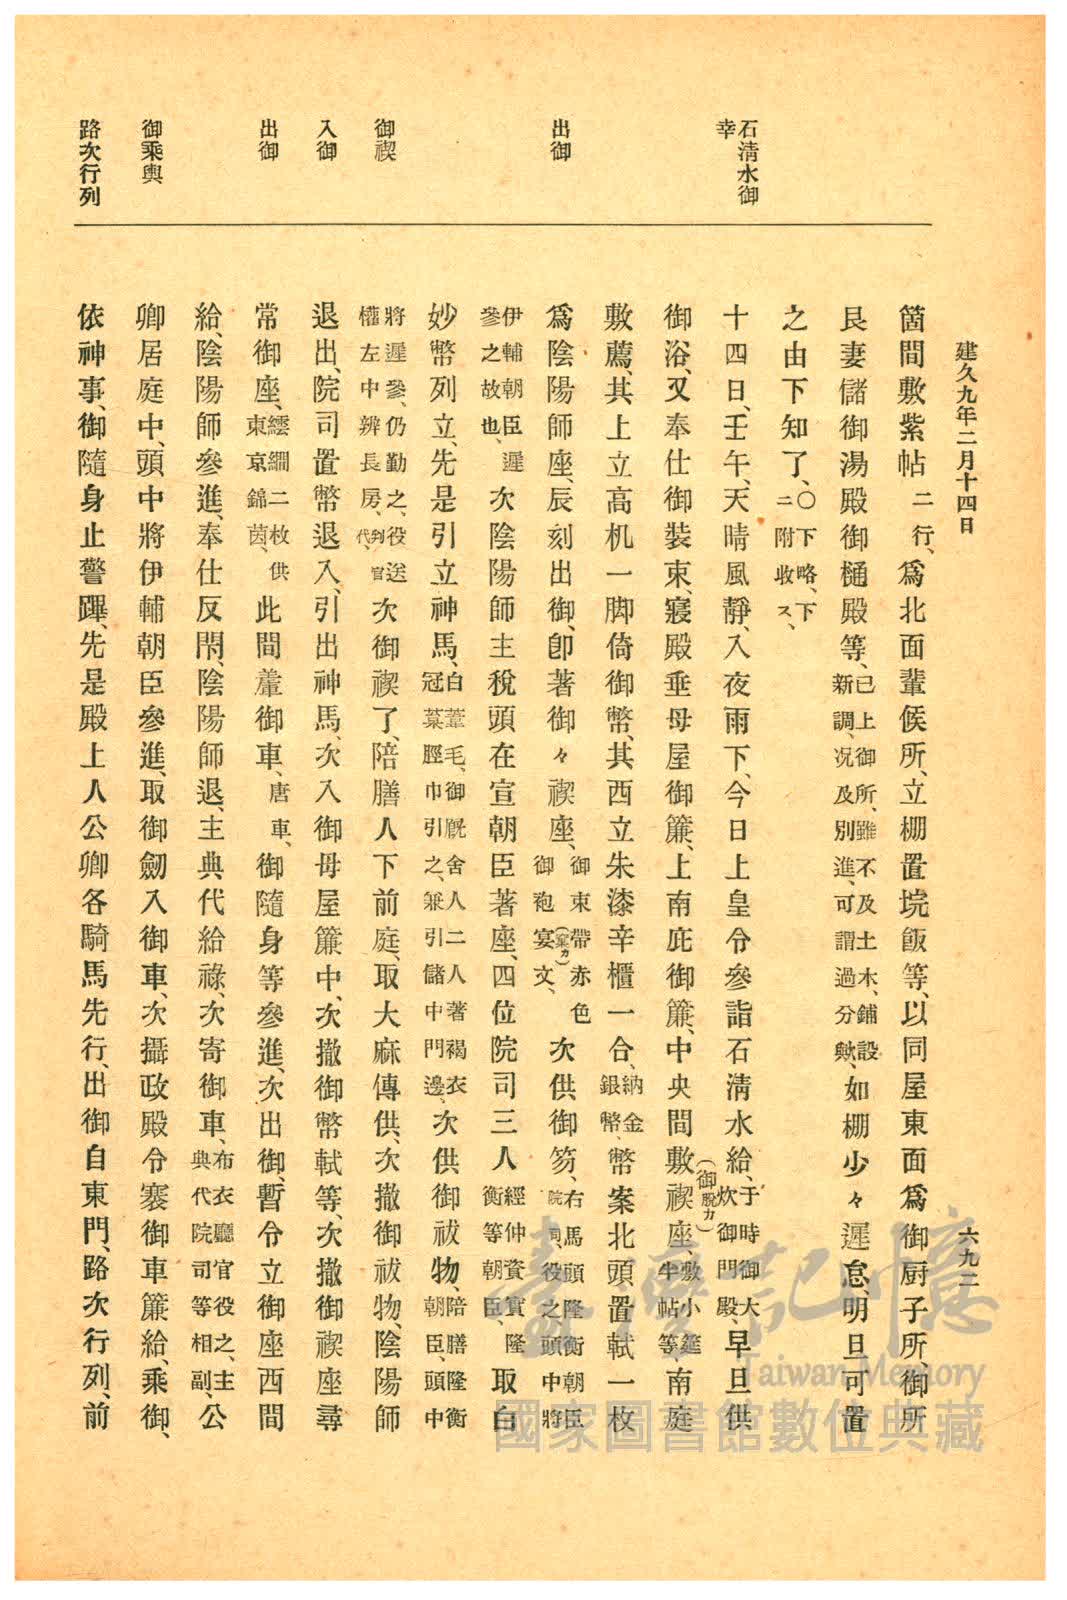 建久九年二月十四日
六九二
石清水御幸
出御
御禊
入御
出御
御乘輿
路次行列
箇間敷紫帖二行、爲北面輩候所、立棚置垸飯等、以同屋東面爲御厨子所、御所
艮妻儲御湯殿御樋殿等、已上御所、雖不及土木、鋪設新調、况及別進、可謂過分歟、如棚少々遲怠、明旦可置
之由下知了、○下略、下ニ附收ス、
十四日、壬午、天晴風靜、入夜雨下、今日上皇令參詣石淸水給、于時御大炊御門殿、早旦供
御浴、又奉仕御裝束、寢殿垂母屋御簾、上南庇御簾、中央間敷禊座、(御脱カ)敷小筵半帖等、南庭
敷薦、其上立高机一脚倚御幣、其西立朱漆辛櫃一合、納金銀幣、幣案北頭、置軾一枚
爲陰陽師座、辰刻出御、卽著御々禊座、御束帶赤色御袍宴(窠カ)文、次供御笏、右馬頭隆衡朝臣院司、役之、頭中將
伊輔朝臣遲參之故也、次陰陽師主稅頭在宣朝臣著座、四位院司三人經仲資實隆衡等朝臣、取白
妙幣列立、先是引立神馬、白葦毛、御厩舍人二人著褐衣冠葈脛巾引之、兼引儲中門邊、次供御祓物、陪膳隆衡朝臣、頭中
將遲參、仍勤之、役送權左中辨長房、判官代、次御禊了、陪膳人下前庭、取大麻傳供、次撤御祓物、陰陽師
退出、院司置幣退入、引出神馬、次入御母屋簾中、次撤御幣軾等、次撤御禊座尋
常御座、繧繝二枚供東京錦茵、此間輦御車、唐車、御隨身等參進、次出御、暫令立御座西間
給、陰陽師參進、奉仕反閇、陰陽師退、主典代給祿、次寄御車、布衣廳官役之、主典代院司等相副、公
卿居庭中、頭中將伊輔朝臣參進、取御劔入御車、次攝政殿令褰御車簾給、乘御、
依神事、御隨身止警蹕、先是殿上人公卿各騎馬先行、出御自東門、路次行列、前
臺灣記憶
Taiwan Memory
國家圖書館數位典藏